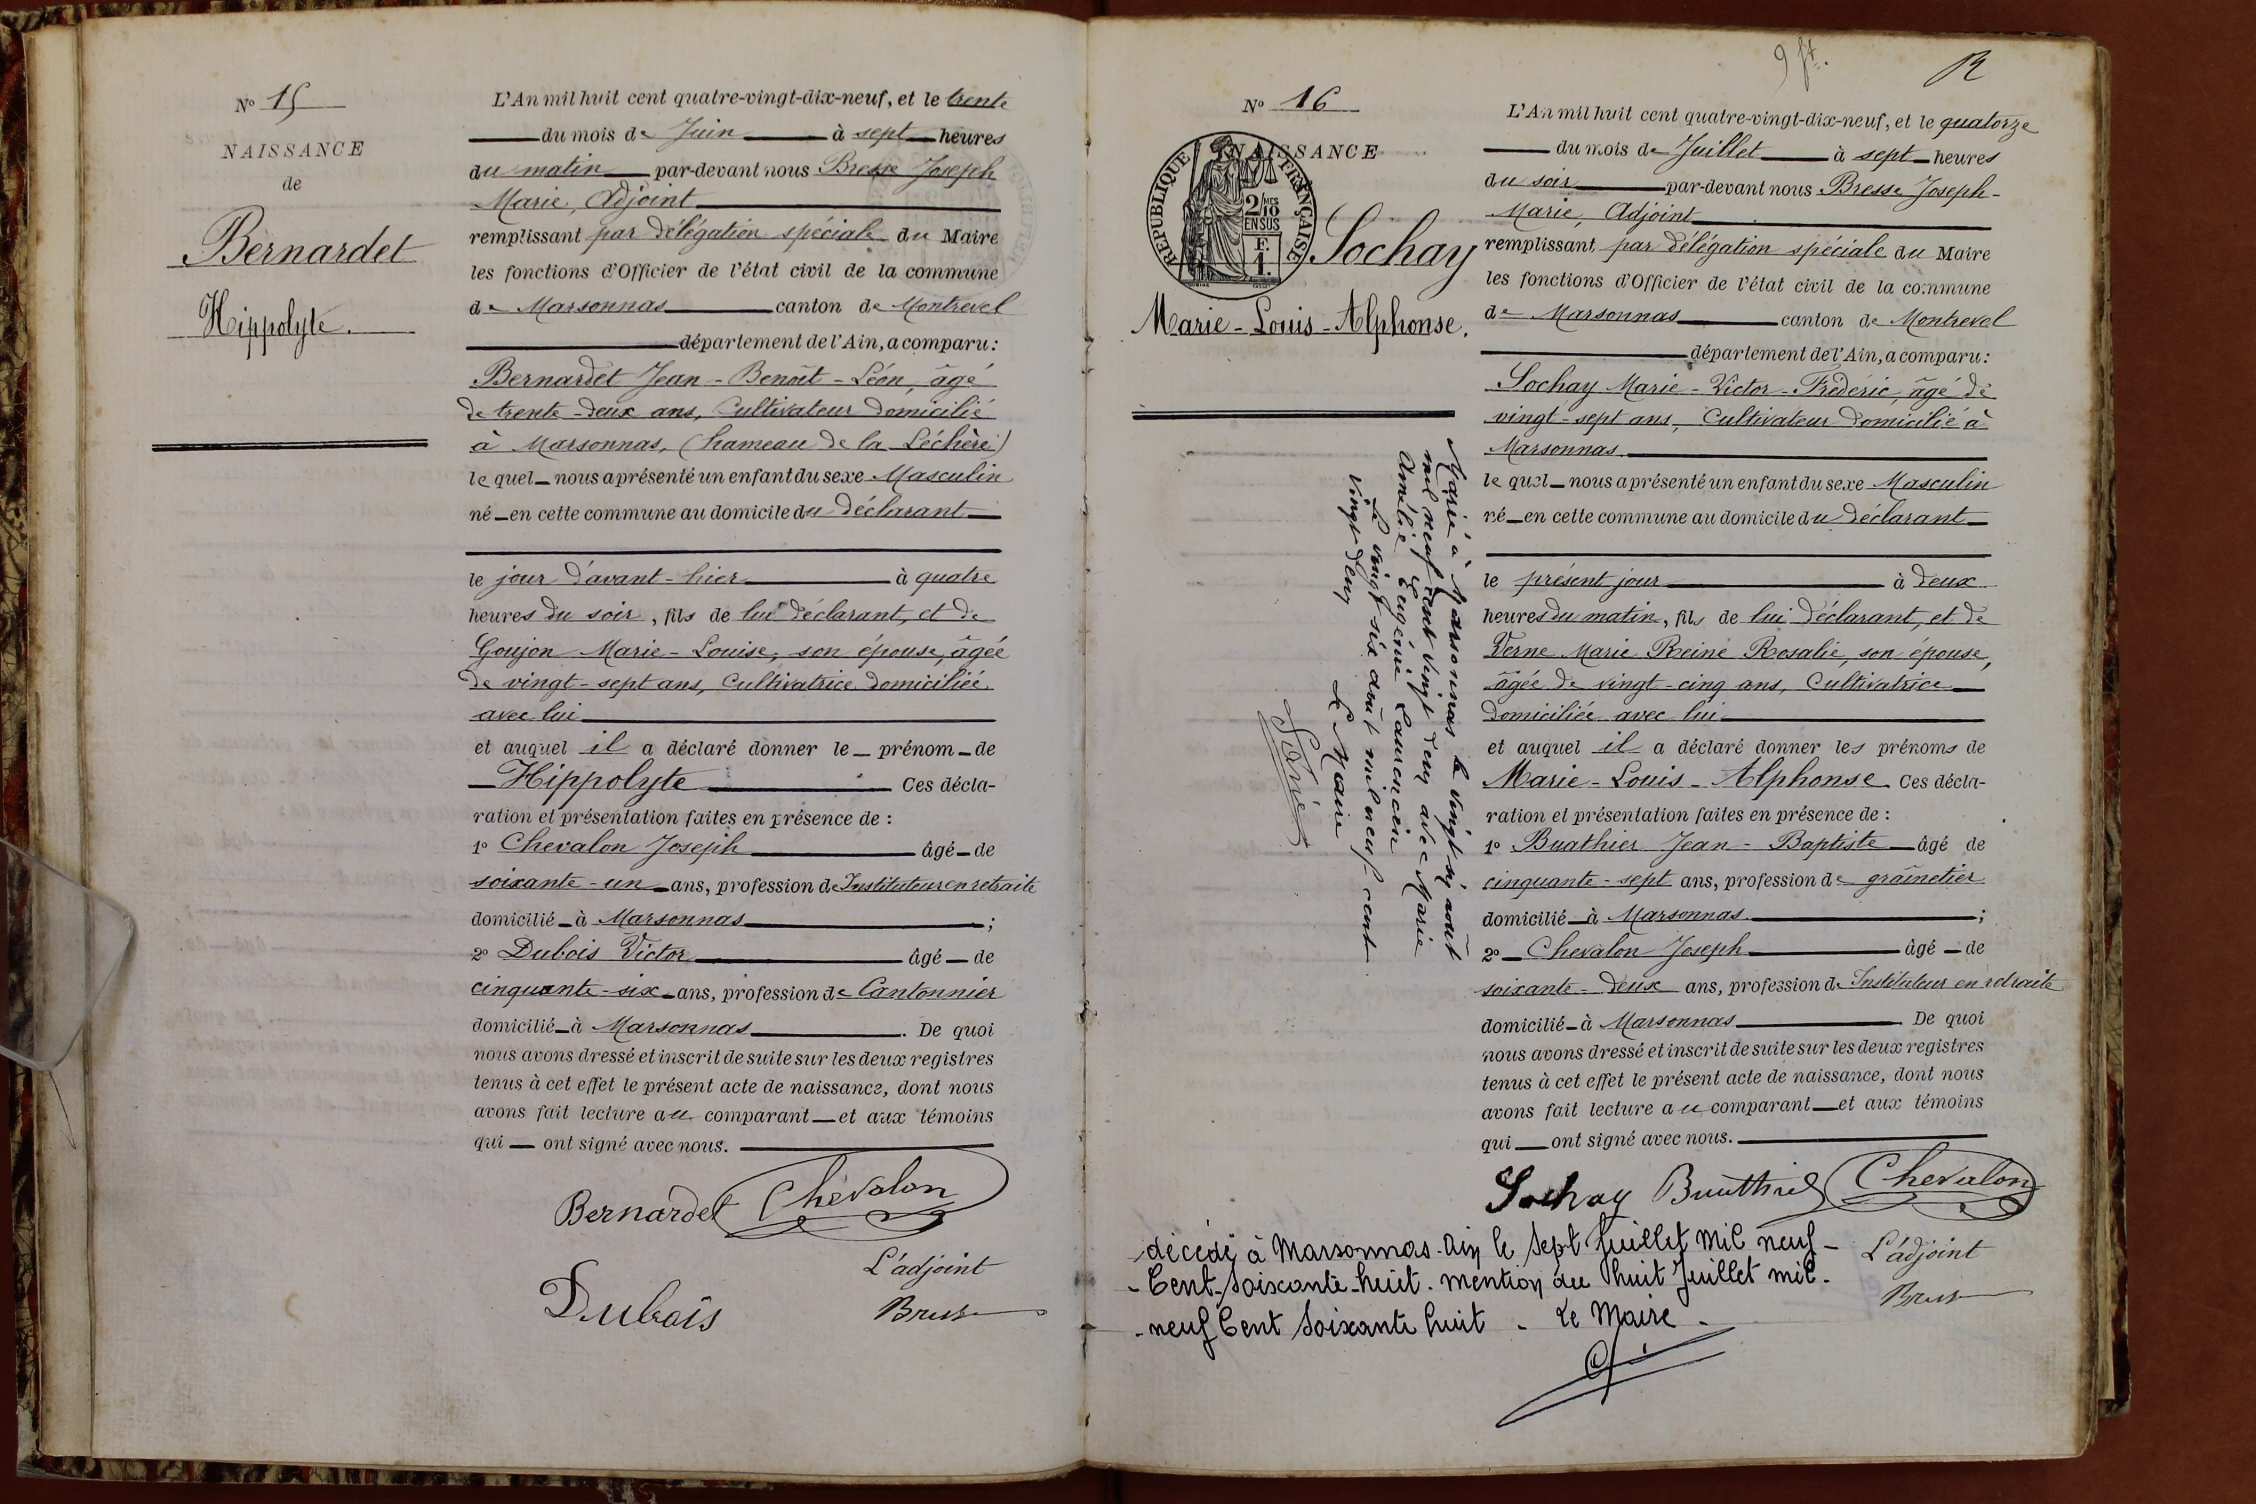 N° 15
NAISSANCE
de
Bernardet
Hippolyte.
L'An mil huit cent quatre-vingt-dix-neuf, et le trente
du mois de Juin à sept heures
du matin par-devant nous Bresse Joseph
Marie, Adjoint
remplissant par délégation spéciale du Maire
les fonctions d'Officier de l'état civil de la commune
de Marsonnas canton de Montrevel
département de l'Ain, a comparu:
Bernardet Jean - Benoît - Léon, âgé
de trente-deux ans, Cultivateur domicilié
à Marsonnas, (hameau de la Léchère)
lequel nous a présenté un enfant du sexe Masculin
né en cette commune au domicile du déclarant
le jour d'avant-hier à quatre
heures du soir, fils de lui déclarant, et de
Goujon Marie-Louise, son épouse, âgée
de vingt-sept ans, Cultivatrice domiciliée
avec lui
et auquel il a déclaré donner le prénom de
Hippolyte Ces décla-
ration et présentation faites en présence de :
1° Chevalon Joseph âgé de
soixante-un ans, profession de Instituteur en retraite
domicilié à Marsonnas ;
2° Dubois Victor âgé de
cinquante-six ans, profession de Cantonnier
domicilié à Marsonnas. De quoi
nous avons dressé et inscrit de suite sur les deux registres
tenus à cet effet le présent acte de naissance, dont nous
avons fait lecture au comparant et aux témoins
qui ont signé avec nous.
Bernardet Chevalon
L'adjoint
Dubois
9 ft.
N° 16
NAISSANCE
RÉPUBLIQUE FRANÇAISE
2/10 MES
EN SUS
F.
1.
Sochay
Marie-Louis-Alphonse.
Marié à Marsonnas le vingt six août
mil neuf cent vingt deux avec Marie
Amélie Eugénie Laurencin
Le vingt six août mil neuf cent
vingt deux Le Maire
L'An mil huit cent quatre-vingt-dix-neuf, et le quatorze
du mois de Juillet à sept heures
du soir par-devant nous Bresse Joseph-
Marie, Adjoint
remplissant par délégation spéciale du Maire
les fonctions d'Officier de l'état civil de la commune
de Marsonnas canton de Montrevel
département de l'Ain, a comparu:
Sochay Marie-Victor-Frédéric, âgé de
vingt-sept ans, Cultivateur domicilié à
Marsonnas
lequel nous a présenté un enfant du sexe Masculin
né en cette commune au domicile du déclarant
le présent jour à deux
heures du matin, fils de lui déclarant, et de
Verne Marie Reine Rosalie, son épouse,
âgée de vingt-cinq ans, Cultivatrice
domiciliée avec lui
et auquel il a déclaré donner les prénoms de
Marie-Louis-Alphonse. Ces décla-
ration et présentation faites en présence de :
1° Buathier Jean-Baptiste âgé de
cinquante-sept ans, profession de grainetier
domicilié à Marsonnas ;
2° Chevalon Joseph âgé de
soixante-deux ans, profession de Instituteur en retraite
domicilié à Marsonnas. De quoi
nous avons dressé et inscrit de suite sur les deux registres
tenus à cet effet le présent acte de naissance, dont nous
avons fait lecture au comparant et aux témoins
qui ont signé avec nous.
Sochay Buathier Chevalon
L'adjoint
décédé à Marsonnas-Ain le sept Juillet mil neuf-
-Cent-Soixante-huit. mention du huit Juillet mil-
-neuf Cent Soixante huit - Le Maire-